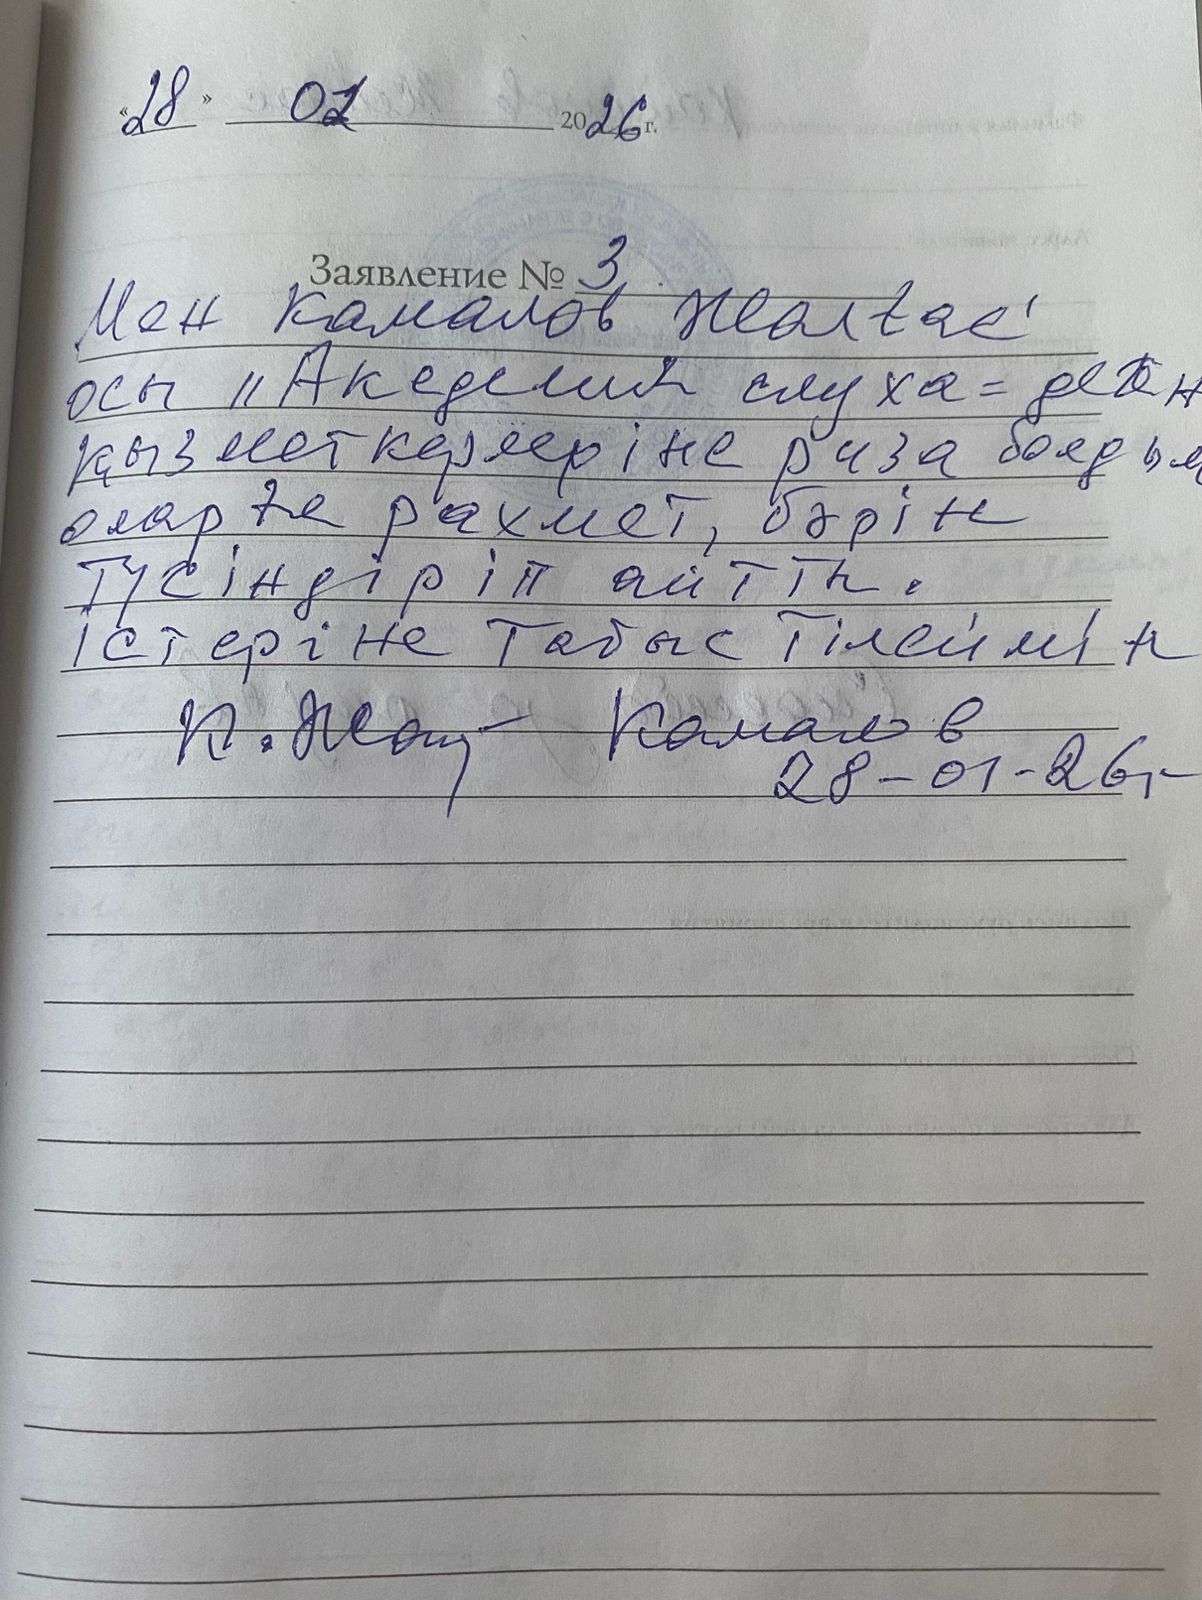 «28» 01 2026 г.
Заявление № 3
Мен Камалов
осы "Академия слуха = деген
қызметкерлеріне риза болдым
оларға рахмет, бәрін
түсіндіріп айтты.
істеріне табыс тілеймін
К. Камалов
28-01-26г